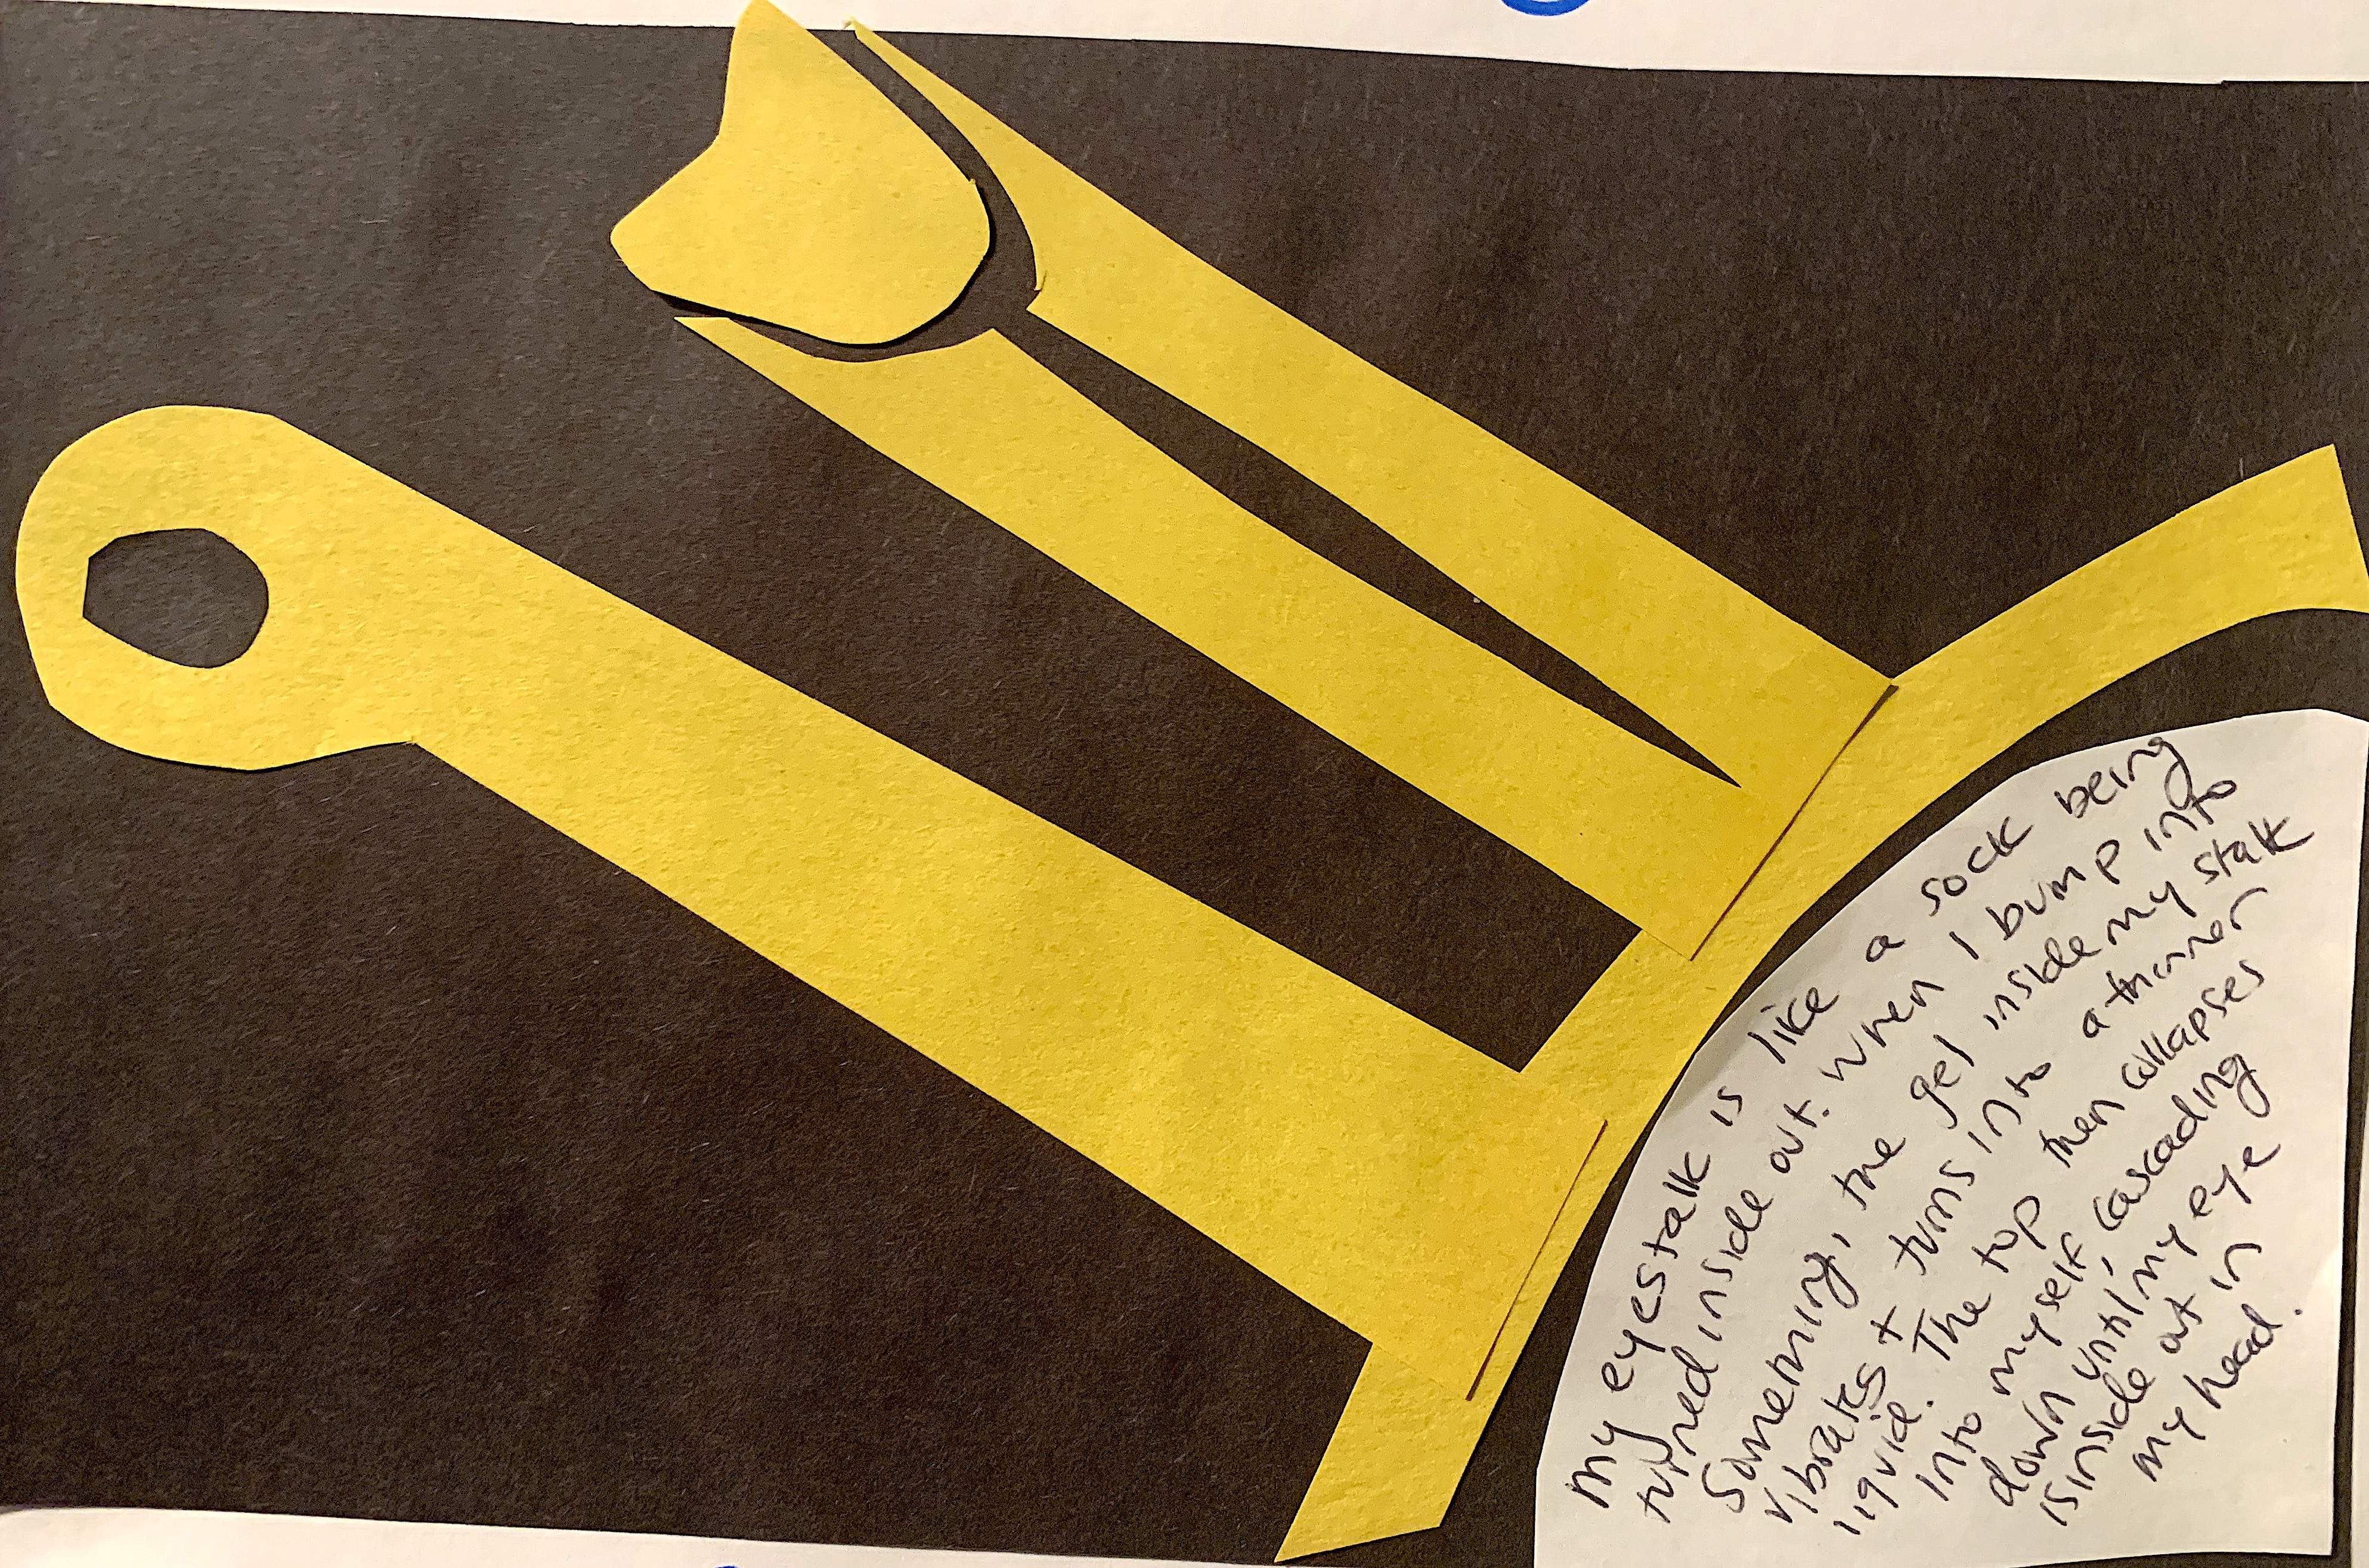 my eyestalk is like a sock being
turned inside out. when I bump into
something, the gel inside my stalk
vibrates + turns into a thinner
liquid. The top then collapses
into myself, cascading
down until my eye
is inside out in
my head.